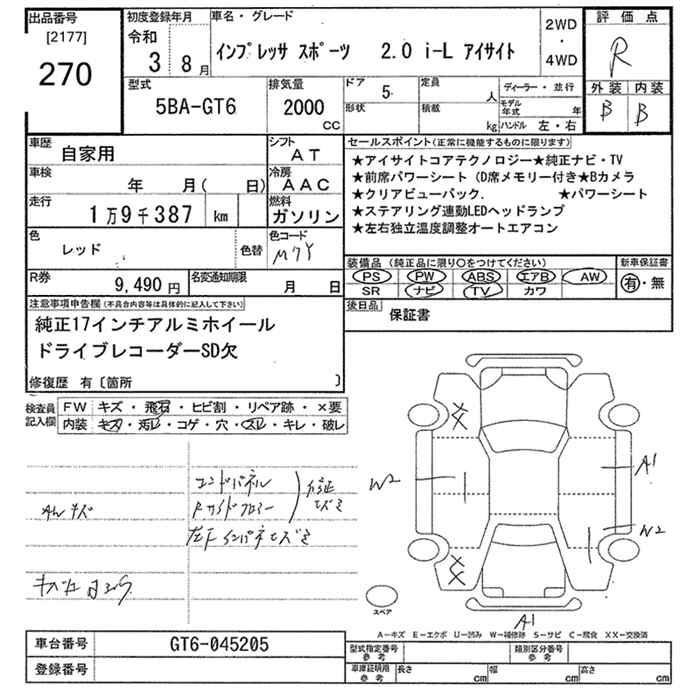 出品番号
[2177]
270
初度登録年月
令和
3 8月
車名・グレード
インプレッサ スポーツ 2.0 i-L アイサイト
2WD
・
4WD
評 価 点
R
外装 内装
B B
型式
5BA-GT6
排気量
2000
CC
ドア 5
形状
定員 人
積載 kg
ディーラー・並行
モデル年式 年
ハンドル 左・右
車歴
自家用
シフト
AT
車検
年 月( 日)
冷房
AAC
走行
1万9千387 km
燃料
ガソリン
色
レッド
色替
色コード
M7Y
R券
9,490円
名変通知期限
月 日
セールスポイント(正常に機能するものに限ります)
★アイサイトコアテクノロジー★純正ナビ・TV
★前席パワーシート(D席メモリー付き★Bカメラ
★クリアビューパック. ★パワーシート
★ステアリング連動LEDヘッドランプ
★左右独立温度調整オートエアコン
装備品(純正品に限り○をつけてください)
PS PW ABS エアB AW
SR ナビ TV カワ
新車保証書
有・無
後日品
保証書
注意事項申告欄(不具合内容等は具体的に記入して下さい)
純正17インチアルミホイール
ドライブレコーダーSD欠
修復歴 有〔箇所 〕
検査員記入欄
FW キズ・飛石・ヒビ割・リペア跡・×要
内装 キズ・汚レ・コゲ・穴・スレ・キレ・破レ
エンドパネル
Rサイドフロアー
修正
ヒズミ
左FインパネヒズミAWキズ
XX
W2
A1
W2
XX
A1
スペア
A-キズ E-エクボ U-凹み W-補修跡 S-サビ C-腐食 XX-交換済
車台番号
GT6-045205
登録番号
型式指定番号
参考
類別区分番号
参考
車庫証明用
参考
長さ cm
幅 cm
高さ cm